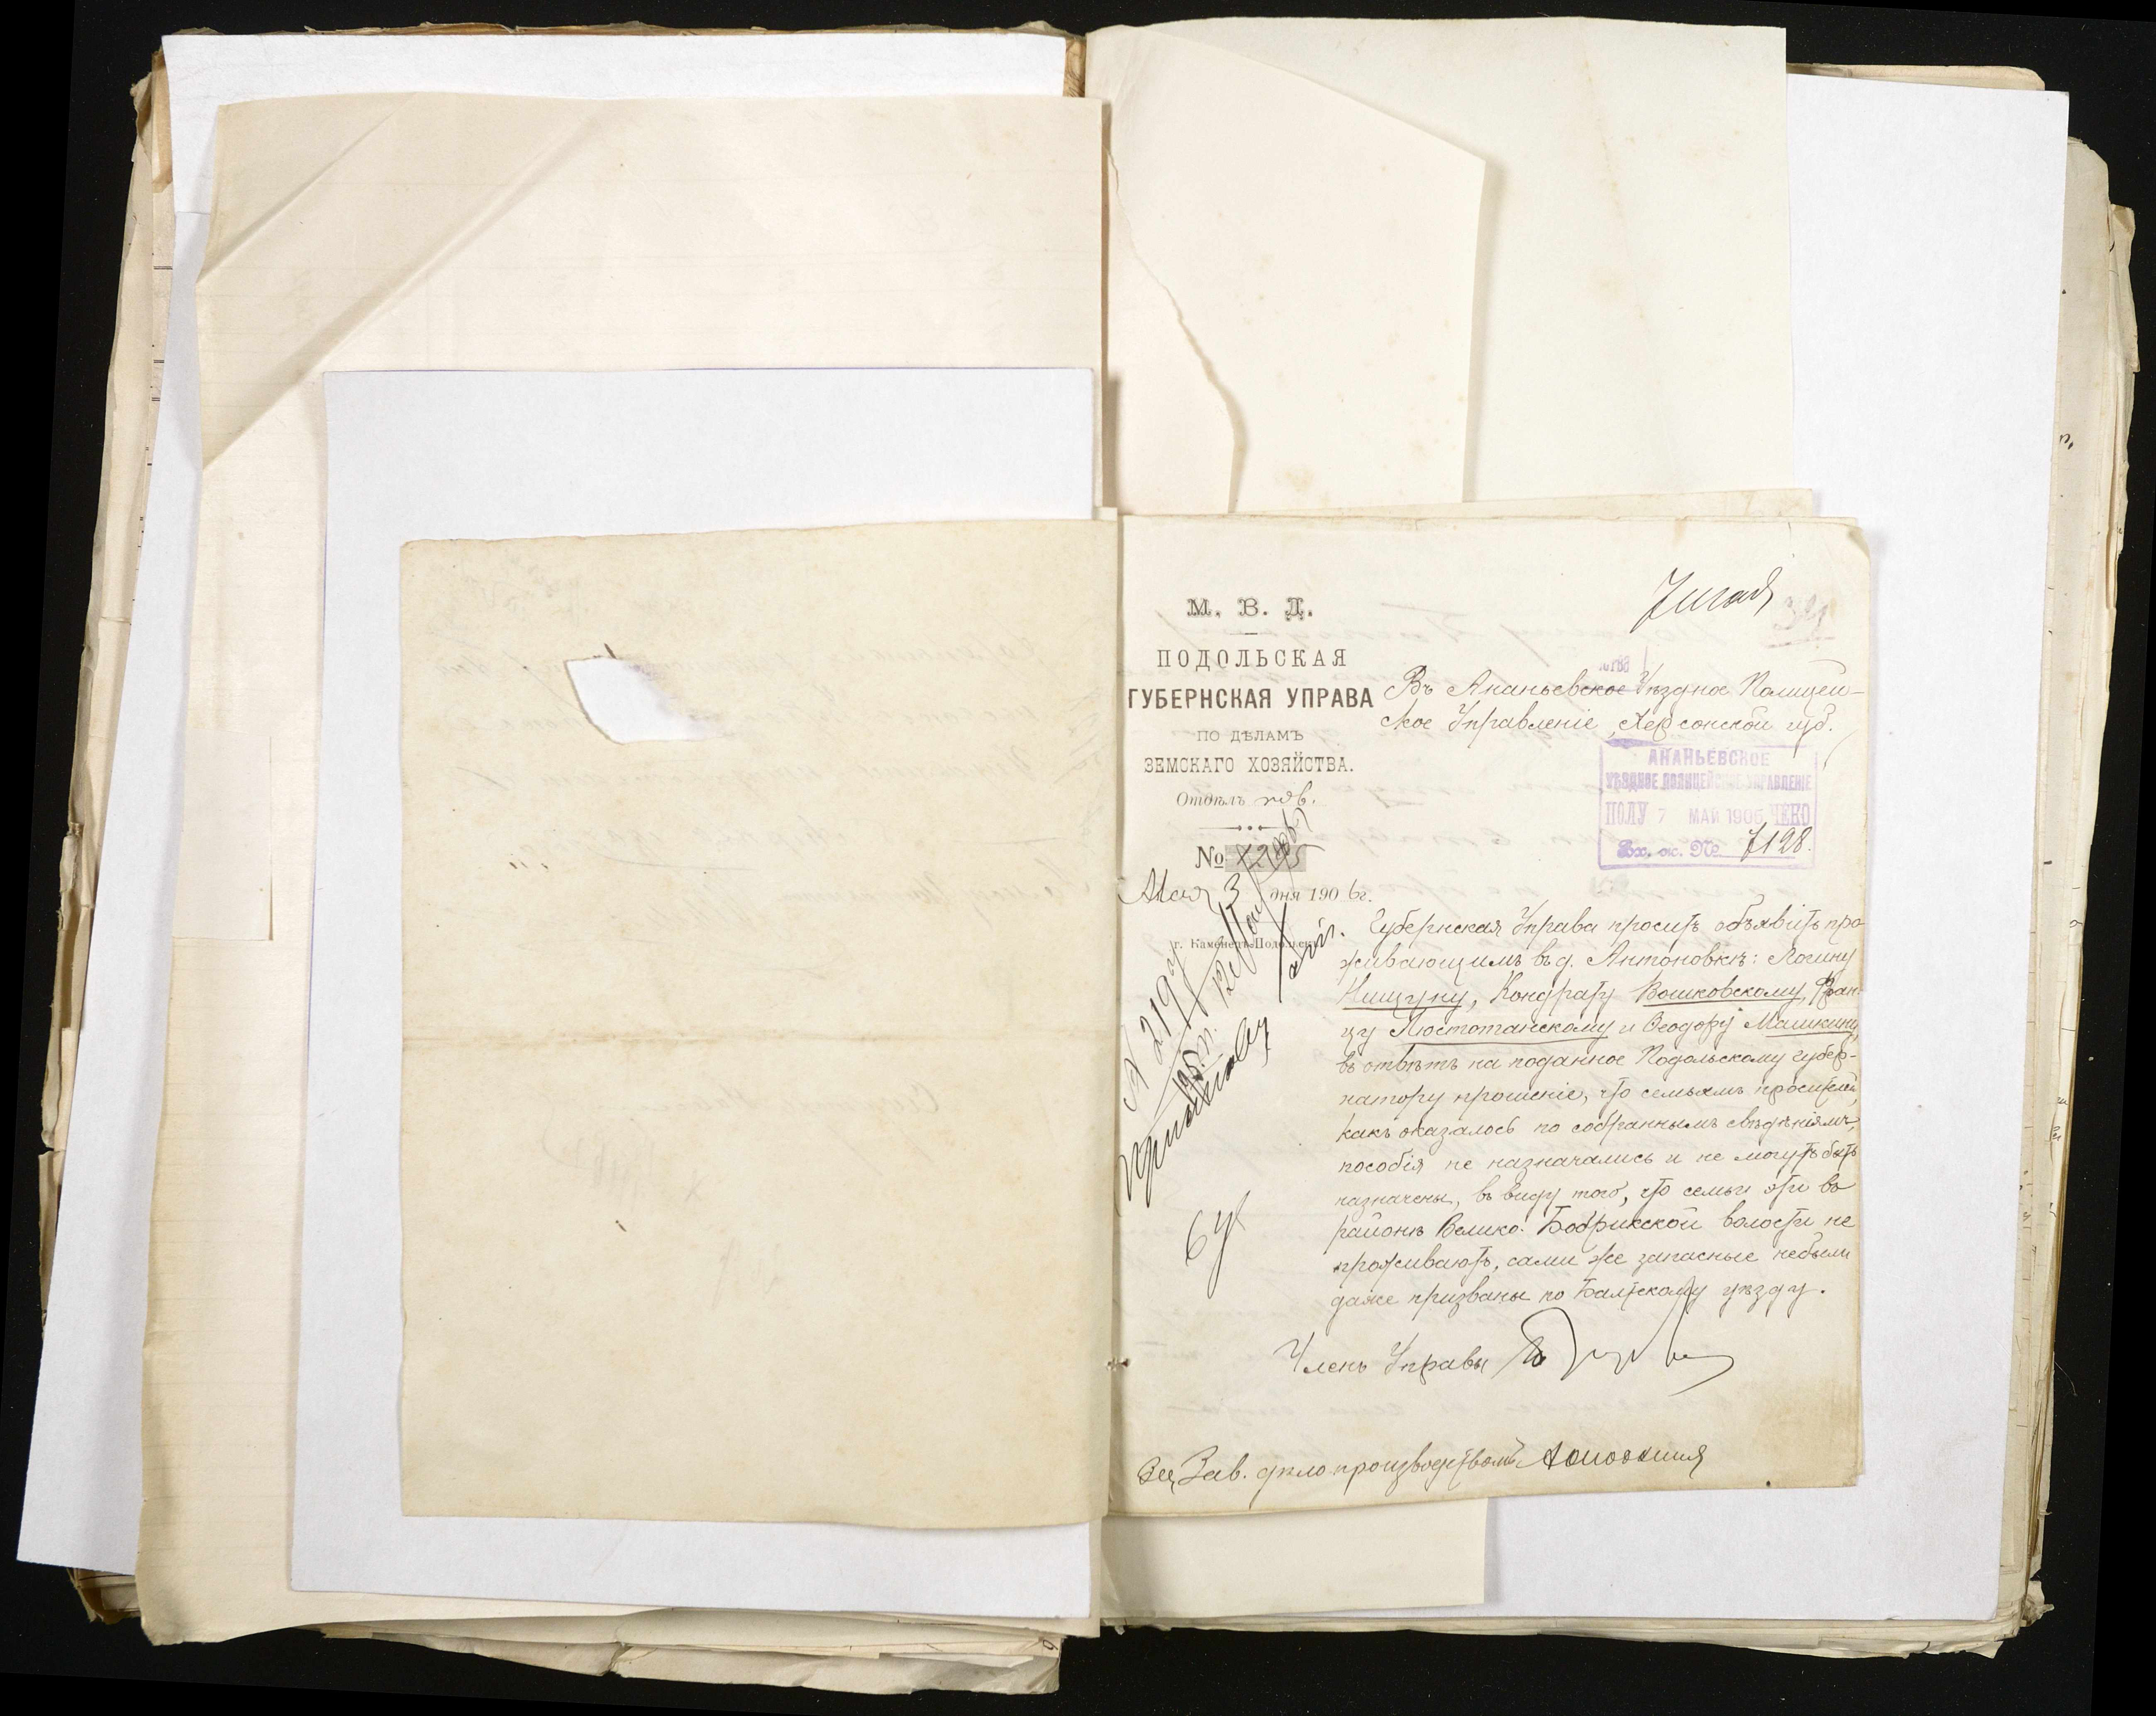 М. В. Д.
ПОДОЛЬСКАЯ
ГУБЕРНСКАЯ УПРАВА
ПО ДѢЛАМЪ
ЗЕМСКАГО ХОЗЯЙСТВА.
Отдѣлъ
№
Мая 3 дня 1906 г.
г. Каменецъ-Подольскъ
Въ Ананьевское Уѣздное Полицей-
ское Управленіе, Херсонской губ.
АНАНЬЕВСКОЕ
УѢЗДНОЕ ПОЛИЦЕЙСКОЕ УПРАВЛЕНІЕ
ПОЛУ 7 МАЙ 1906 ЧЕНО
Вх. ж. № 7128.
Губернская Управа проситъ объявить про
живающимъ въ д. Антоновкѣ: Логину
Нищуну, Кондрату Вошковскому, Фран-
цу Постотанскому и Ѳеодору Машкину,
въ отвѣтъ на поданное Подольскому губер-
натору прошеніе, что семьямъ просителей,
какъ оказалось по собраннымъ свѣдѣніямъ,
пособія не назначались и не могутъ быть
назначены, въ виду того, что семьи эти въ
районѣ Велико-Бобрикской волости не
проживаютъ, сами же запасные небыли
даже призваны по Балтскому уѣзду.
Членъ Управы
Зав. дѣлопроизводствомъ